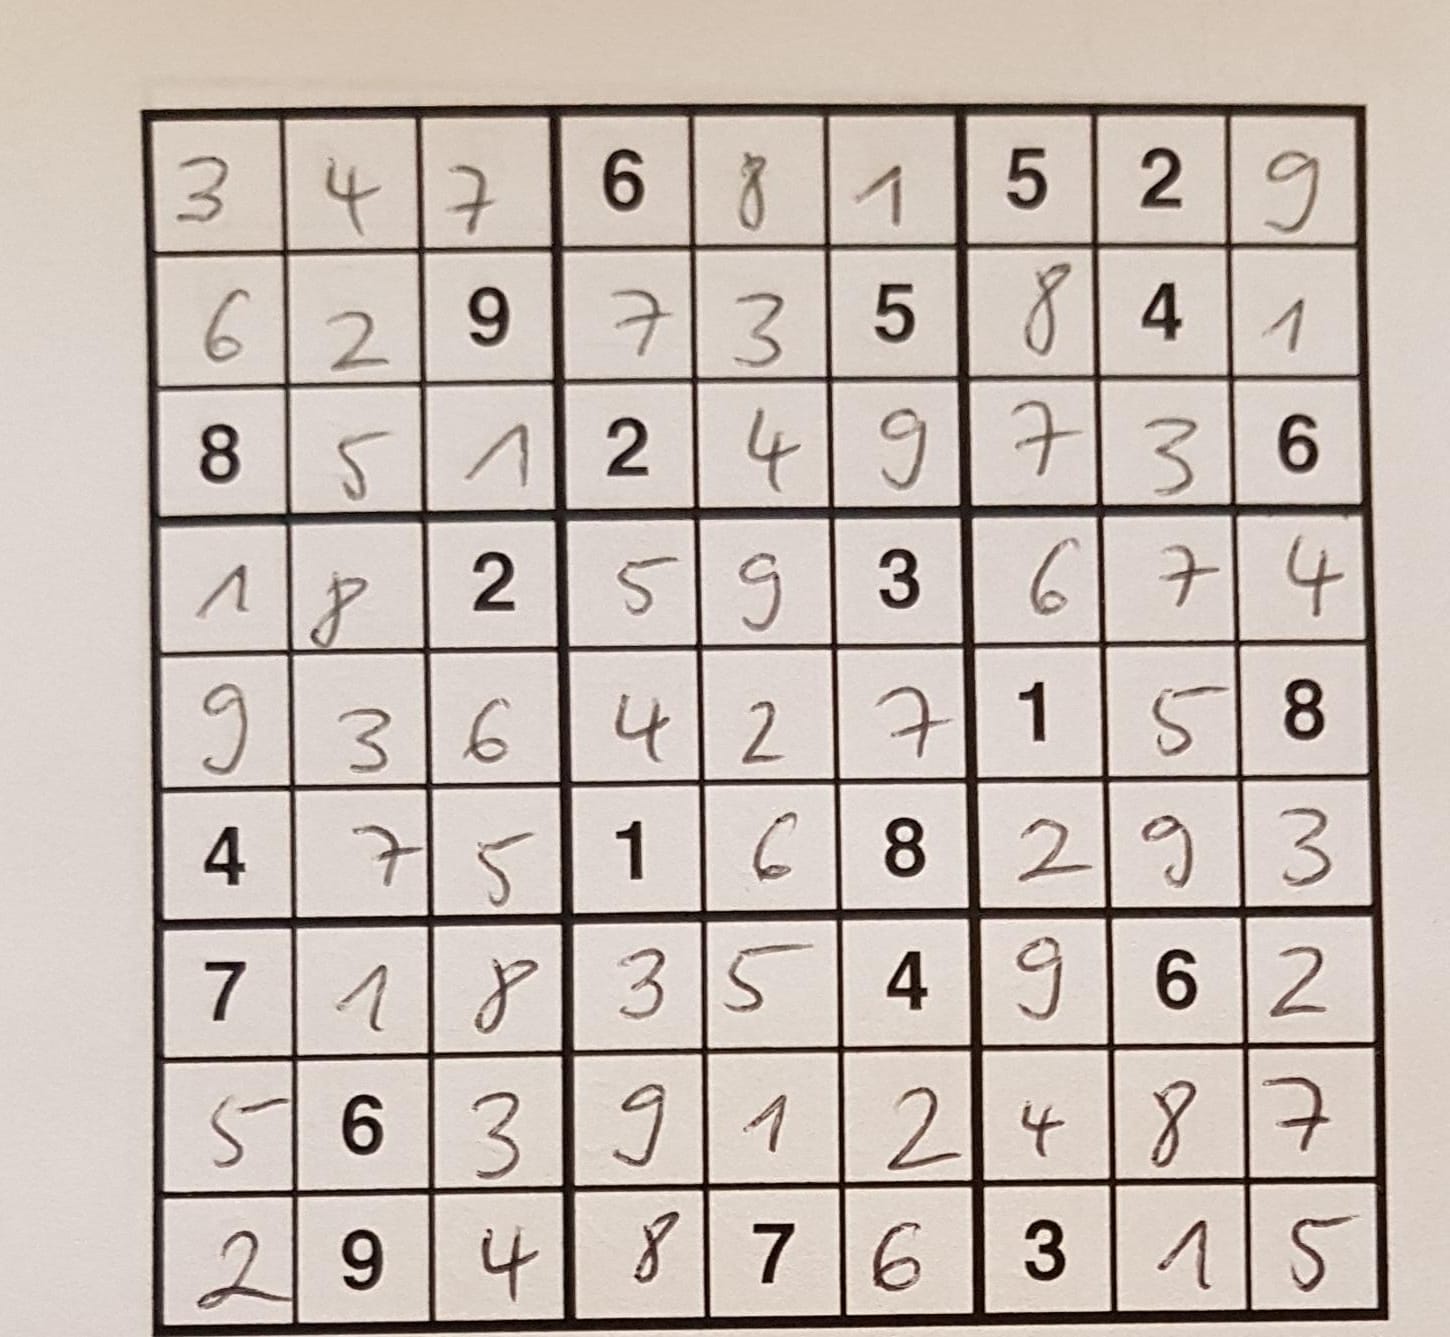 3 4 7 6 8 1 5 2 9
6 2 9 7 3 5 8 4 1
8 5 1 2 4 9 7 3 6
1 8 2 5 9 3 6 7 4
9 3 6 4 2 7 1 5 8
4 7 5 1 6 8 2 9 3
7 1 8 3 5 4 9 6 2
5 6 3 9 1 2 4 8 7
2 9 4 8 7 6 3 1 5